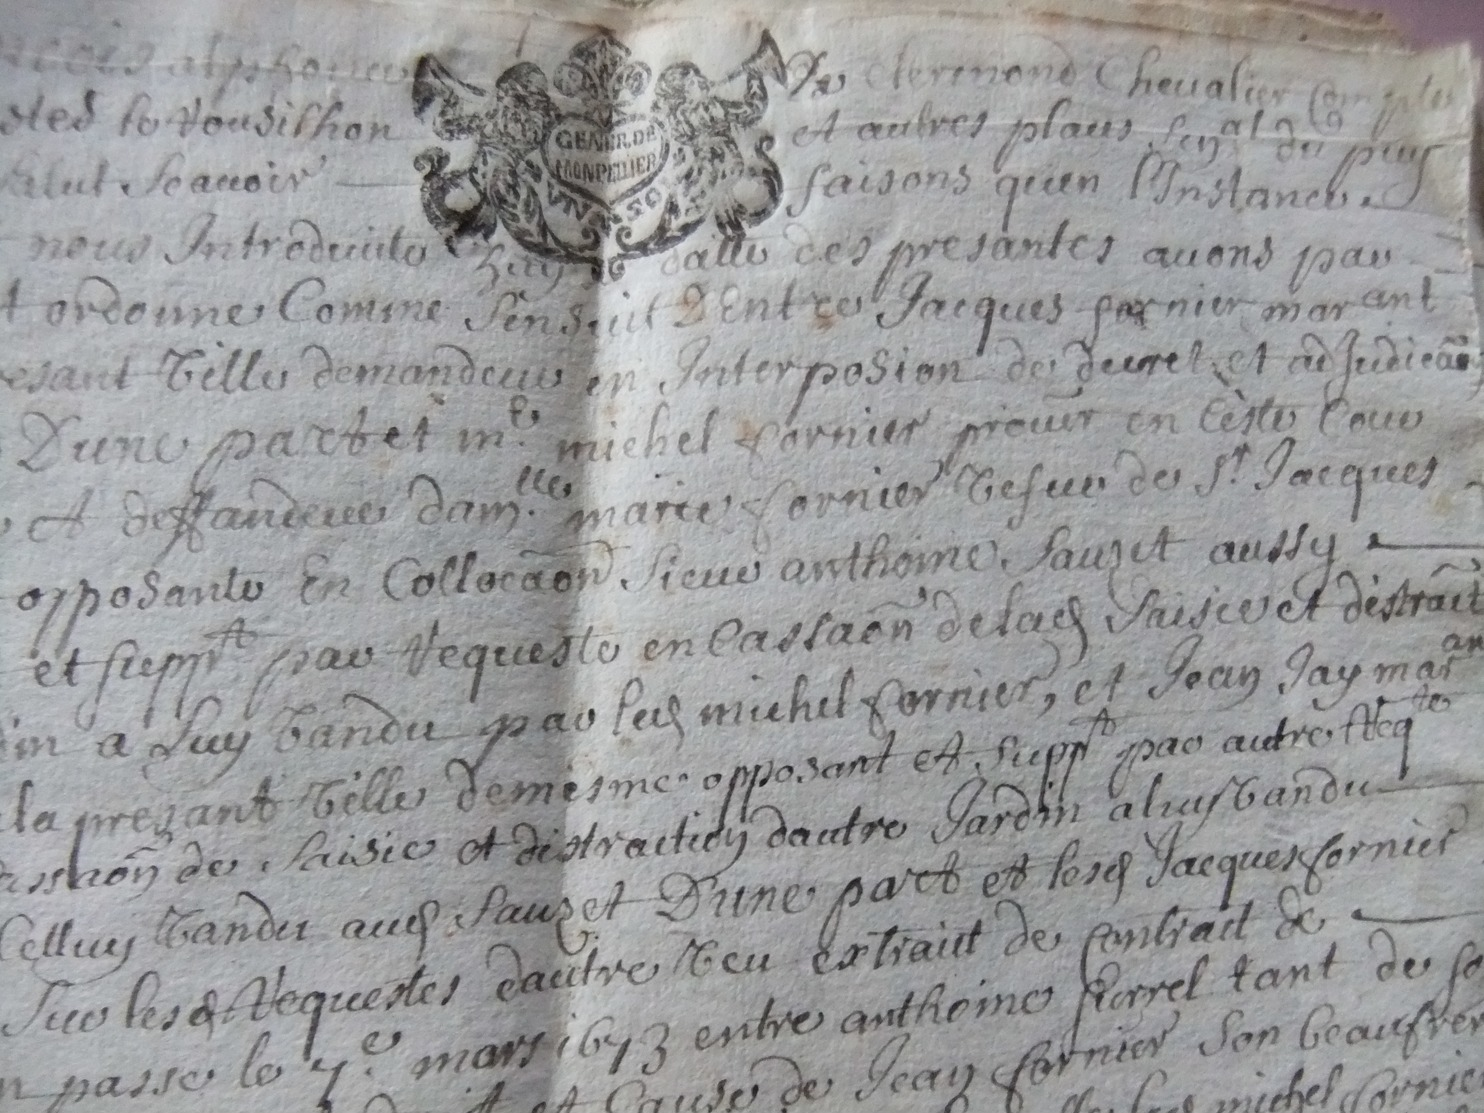 alphonce
De Clermond Chevalier Compte
GENER.DE
MONPELLIER
et autres plaus senal du puy
salut scauoir
faisons quen l'Instance
nous Introduitte huy datte des presantes auons par
ordonne Comme sensuit Dentre Jacques fornier marant
ville demandeur en Interposion de decret et adjudicaon
Dune part et me michel fornier procur en ceste Cour
et deffandeur damlle marie fornier vefue de sr Jacques
opposante En Collocaon sieur anthoine sauzet aussy
et suppt par requeste en Cassaon de lad saisie et distraict
a Luy vandu par led michel fornier, et Jean Jay marant
la presant ville demesme opposant et suppt par autre Reqte
de saisie et distraction dautre Jardin a luy vandu
Celluy vandu aud sauzet D'une part et lesd Jacques fornier
sur lesd Requestes dautre veu extrait de contrait de
passe le 7e mars 1673 entre anthoine tant de
et Cause de Jean fornier son beaufrere
michel fornier